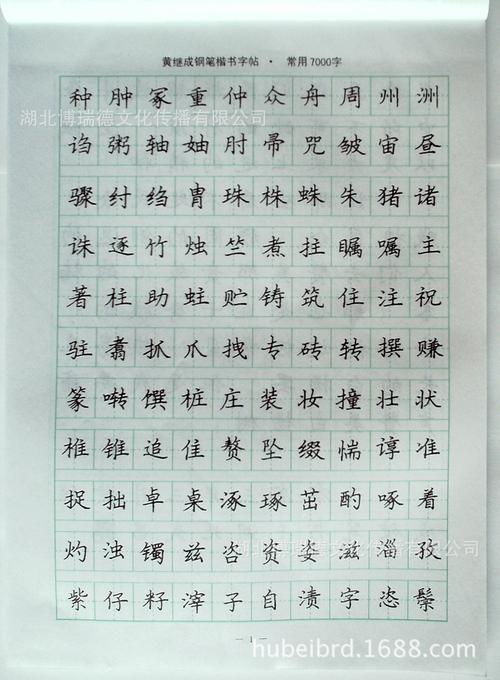 黄继成钢笔楷书字帖 · 常用7000字
种肿冢重仲众舟周州洲
湖北博瑞德文化传播有限公司
诌粥轴妯肘帚咒皱宙昼
骤纣绉胄珠株蛛朱猪诸
诛逐竹烛竺煮拄瞩嘱主
著柱助蛀贮铸筑住注祝
驻翥抓爪拽专砖转撰赚
篆啭馔桩庄装妆撞壮状
椎锥追隹赘坠缀惴谆准
捉拙卓桌涿琢茁酌啄着
灼浊镯兹咨资姿滋淄孜
湖北博瑞德文化传播有限公司
紫仔籽滓子自渍字恣鬃
— 1 —
hubeibrd.1688.com